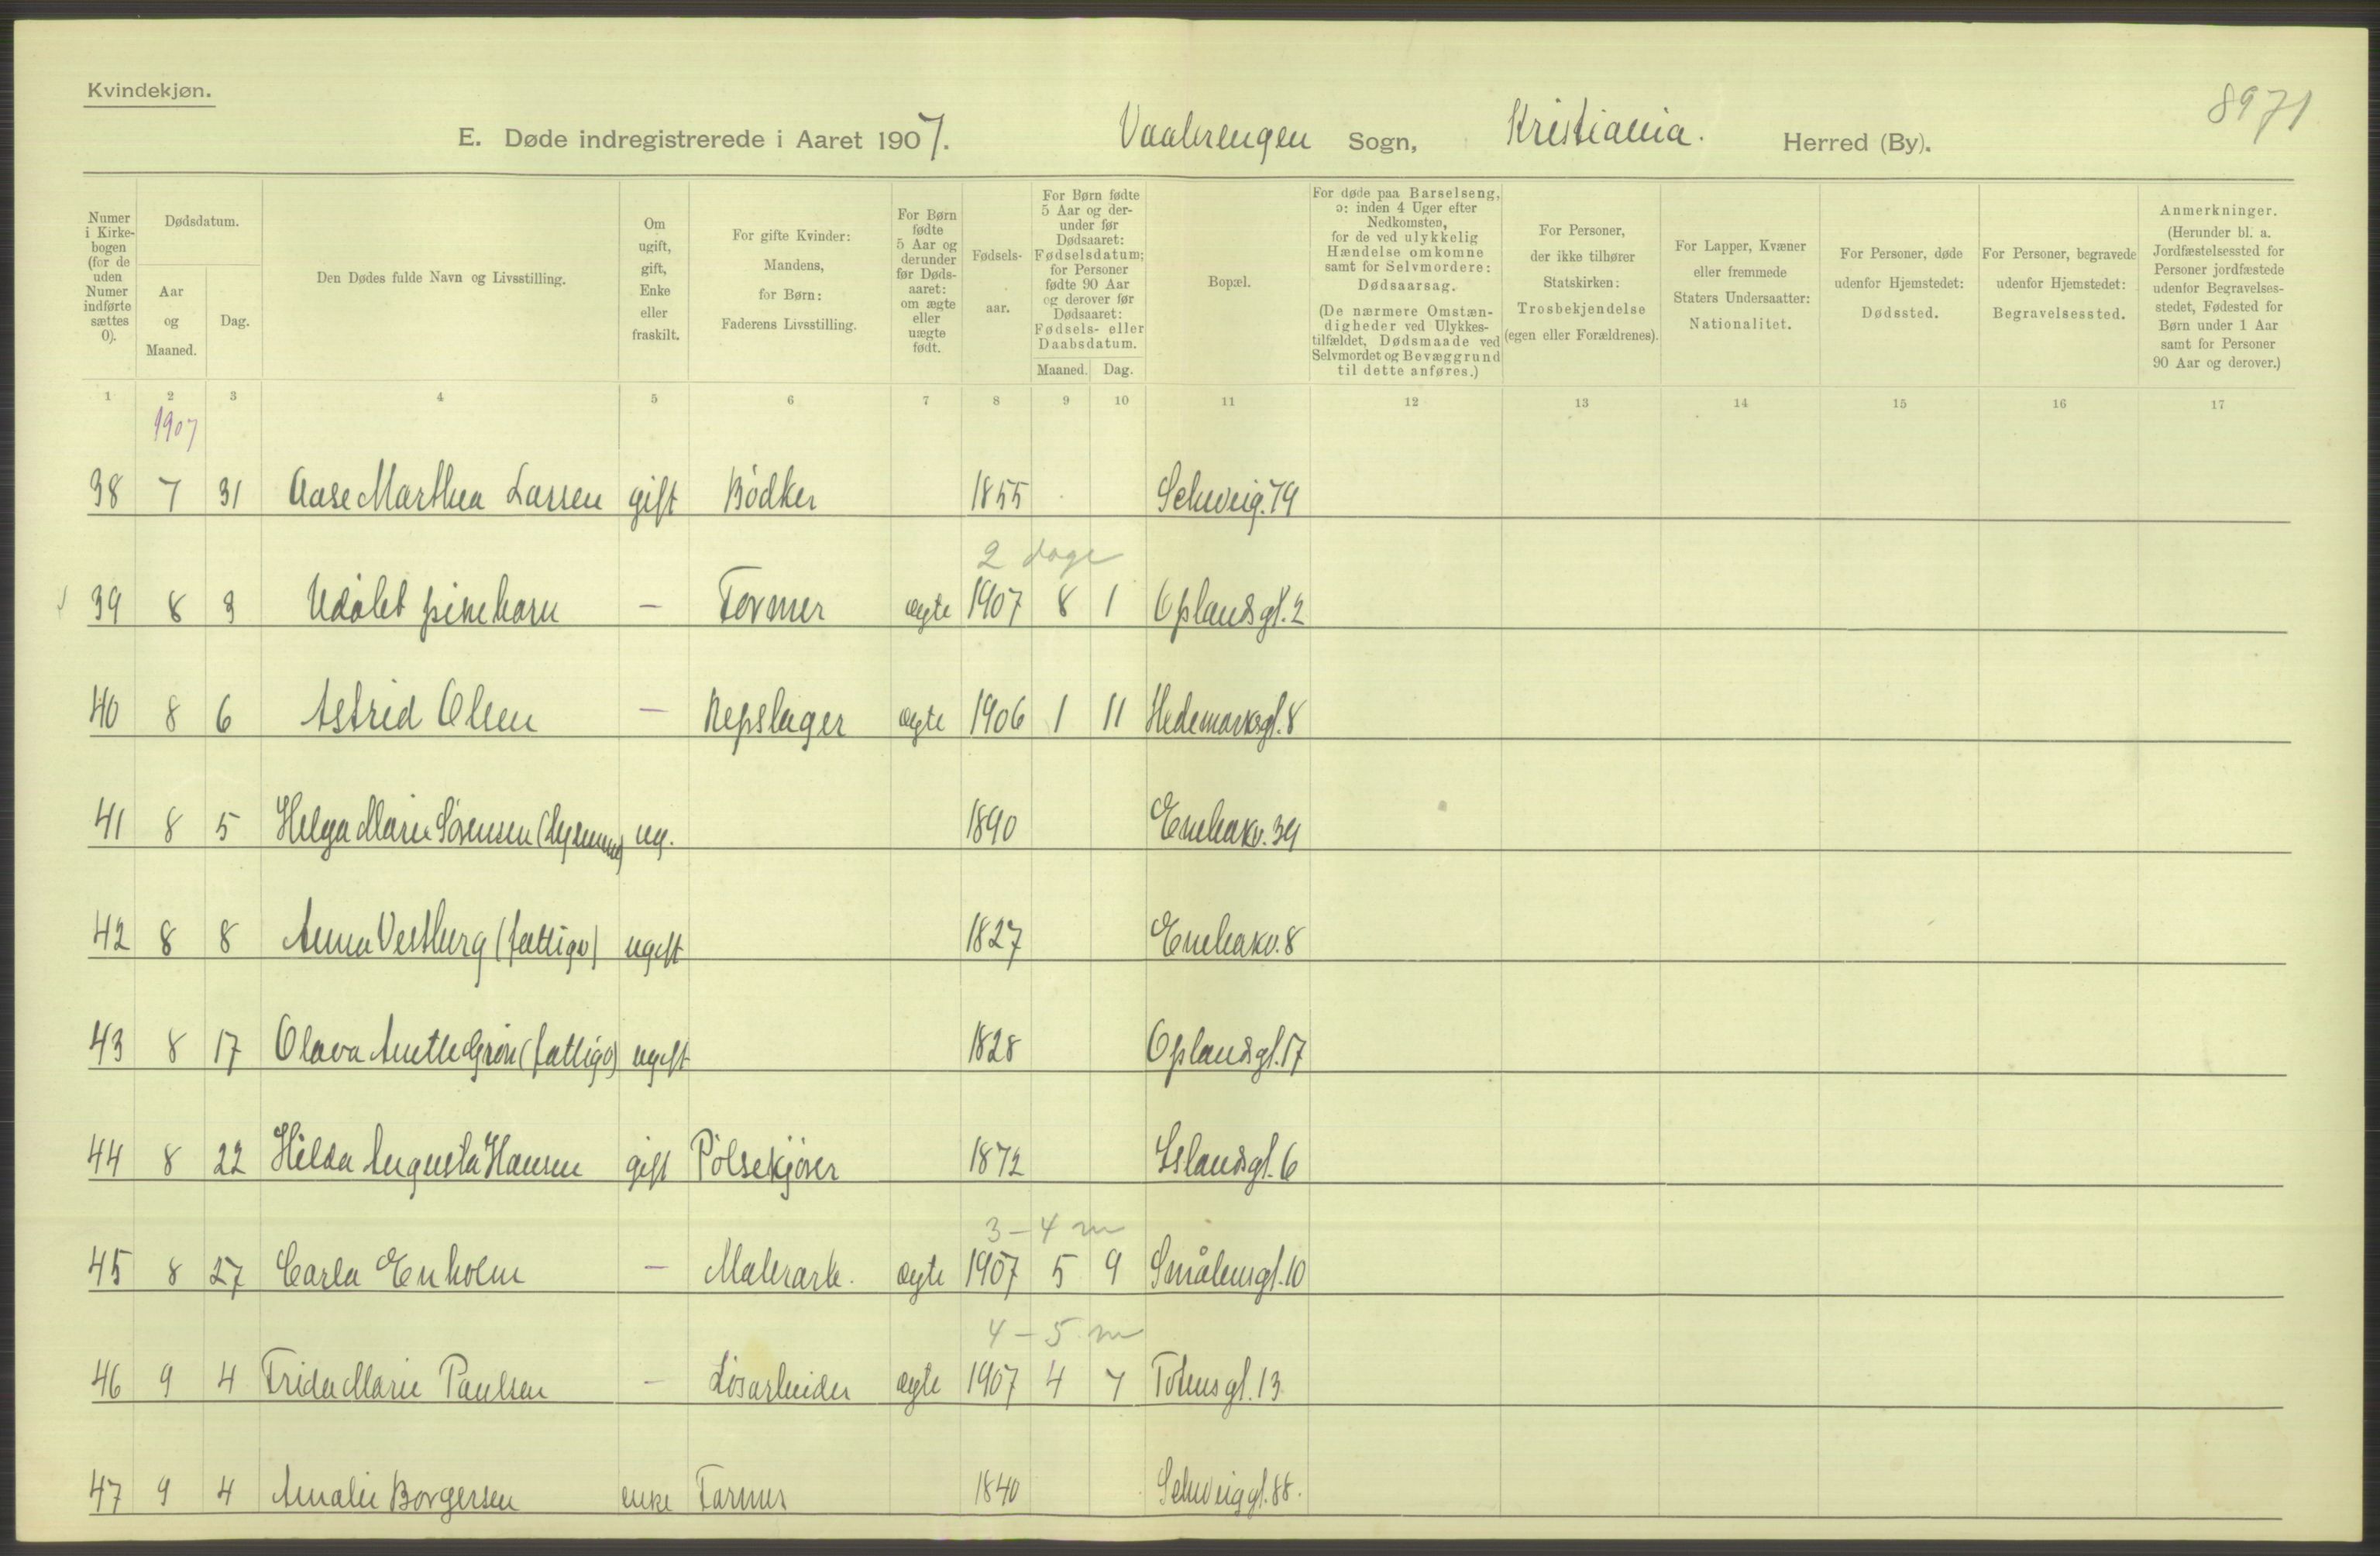 Kvindekjøn.
8971
E. Døde indregistrerede i Aaret 1907. Vaalerengen Sogn, Kristiania. Herred (By).
Numer i Kirkebogen (for de uden Numer indførte sættes 0).
Dødsdatum.
Aar og Maaned.
Dag.
Den Dødes fulde Navn og Livsstilling.
Om ugift, gift, Enke eller fraskilt.
For gifte Kvinder: Mandens, for Børn: Faderens Livsstilling.
For Børn fødte 5 Aar og derunder før Dødsaaret: om ægte eller uægte født.
Fødselsaar.
For Børn fødte 5 Aar og derunder før Dødsaaret: Fødselsdatum; for Personer fødte 90 Aar og derover før Dødsaaret: Fødsels- eller Daabsdatum.
Maaned. Dag.
Bopæl.
For døde paa Barselseng, ɔ: inden 4 Uger efter Nedkomsten, for de ved ulykkelig Hændelse omkomne samt for Selvmordere: Dødsaarsag.
(De nærmere Omstændigheder ved Ulykkestilfældet, Dødsmaade ved Selvmordet og Bevæggrund til dette anføres.)
For Personer, der ikke tilhører Statskirken: Trosbekjendelse (egen eller Forældrenes).
For Lapper, Kvæner eller fremmede Staters Undersaatter: Nationalitet.
For Personer, døde udenfor Hjemstedet: Dødssted.
For Personer, begravede udenfor Hjemstedet: Begravelsessted.
Anmerkninger. (Herunder bl. a. Jordfæstelsessted for Personer jordfæstede udenfor Begravelsesstedet, Fødested for Børn under 1 Aar samt for Personer 90 Aar og derover.)
1 2 3 4 5 6 7 8 9 10 11 12 13 14 15 16 17
1907
38 7 31 Aase Marthea Larsen gift Bødker 1855 Schweig. 79
2 dage
39 8 3 Udøbt pikebarn — Former ægte 1907 8 1 Oplandsgt. 2
40 8 6 Astrid Olsen — Repslager ægte 1906 1 11 Hedemarksgt. 8
41 8 5 Helga Marie Sørensen ug. 1890 Enebakv. 39
42 8 8 Anna Vestberg (fattigv) ugift 1827 Enebakv. 8
43 8 17 Olava Anette Grøn (fattigv) ugift 1828 Oplandsgt. 17
44 8 22 Hilda Augusta Hansen gift Pølsekjører 1872 Islandsgt. 6
3 – 4 m
45 8 27 Carla Enholm — Malerarb. ægte 1907 5 9 Smålensgt. 10
4 – 5 m
46 9 4 Frida Marie Paulsen — Løsarbeider ægte 1907 4 7 Totensgt. 13
47 9 4 Amalie Borgersen enke Farmer 1840 Schweiggt. 88.